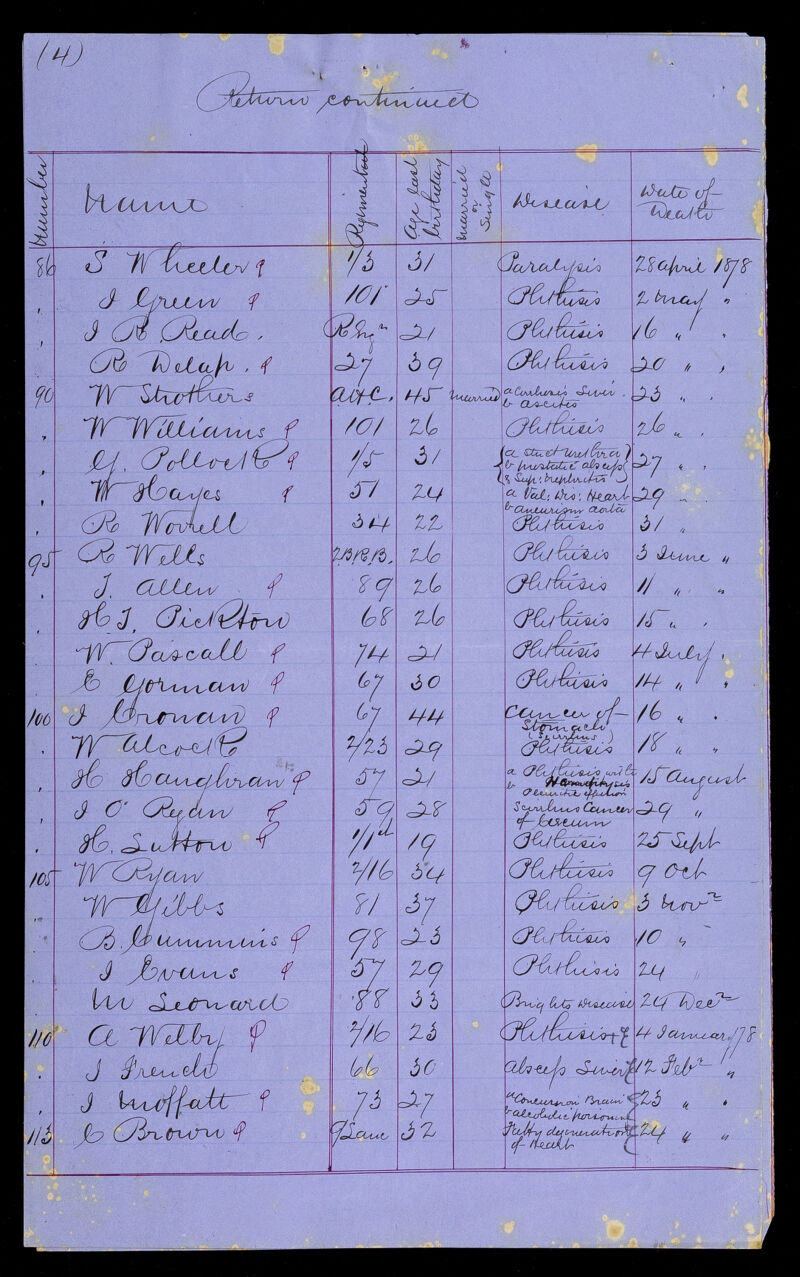 (4)
Return continued
Number Name Regiment Age last birthday Married or Single Disease Date of Death
86 S Wheeler 1/3 31 Paralysis 28 april 1878
" J Green 101 25 Phthisis 2 May "
" J R Read. R Engrs 21 Phthisis 16 " "
R Delap. 27 39 Phthisis 20 " "
90 W Strothers A.H.C. 45 Married a Cirrhosis Liver. b Ascites 23 " "
" W Williams 101 26 Phthisis 26 " "
" G. Pollock 1/5 31 a Strict Urethra b prostatic abscess & Sup: Nephritis 27 " "
" W Hayes 51 24 a Val: Dis: Heart b aneurism aorta 29 " "
" R Worrell 34 22 Phthisis 31 "
95 R Wells 2.B.R.B. 26 Phthisis 3 June "
" J. Allen 89 26 Phthisis 11 " "
" H J. Pickton 68 26 Phthisis 15 " "
" W. Pascall 74 21 Phthisis 4 July "
" E Gorman 67 30 Phthisis 14 " "
100 J Cronan 67 44 Cancer of Stomach (Scirrhus) 16 " "
" W Alcock 2/23 29 Phthisis 18 " "
" H Haughran 57 21 a Phthisis with b Haemoptysis Pleuritic effusion 15 August
" J O'Regan 59 28 Scirrhus Cancer of Caecum 29 "
" H. Sutton 1/1st 19 Phthisis 25 Sept
105 W Ryan 2/16 34 Phthisis 9 Oct
" W Gibbs 81 37 Phthisis 3 Novr
" B. Cummins 98 23 Phthisis 10 "
" J Evans 57 29 Phthisis 24 "
M Leonard 88 33 Brights Disease 24 Decr
110 A Welby 2/16 23 Phthisis 4 January /78
" J French 66 30 Abscess Liver 12 Feby "
" J Moffatt 73 27 a Concussion Brain b alcoholic poisoning 23 " "
113 C Brown 9 Lanc 32 Fatty degeneration of Heart 24 " "